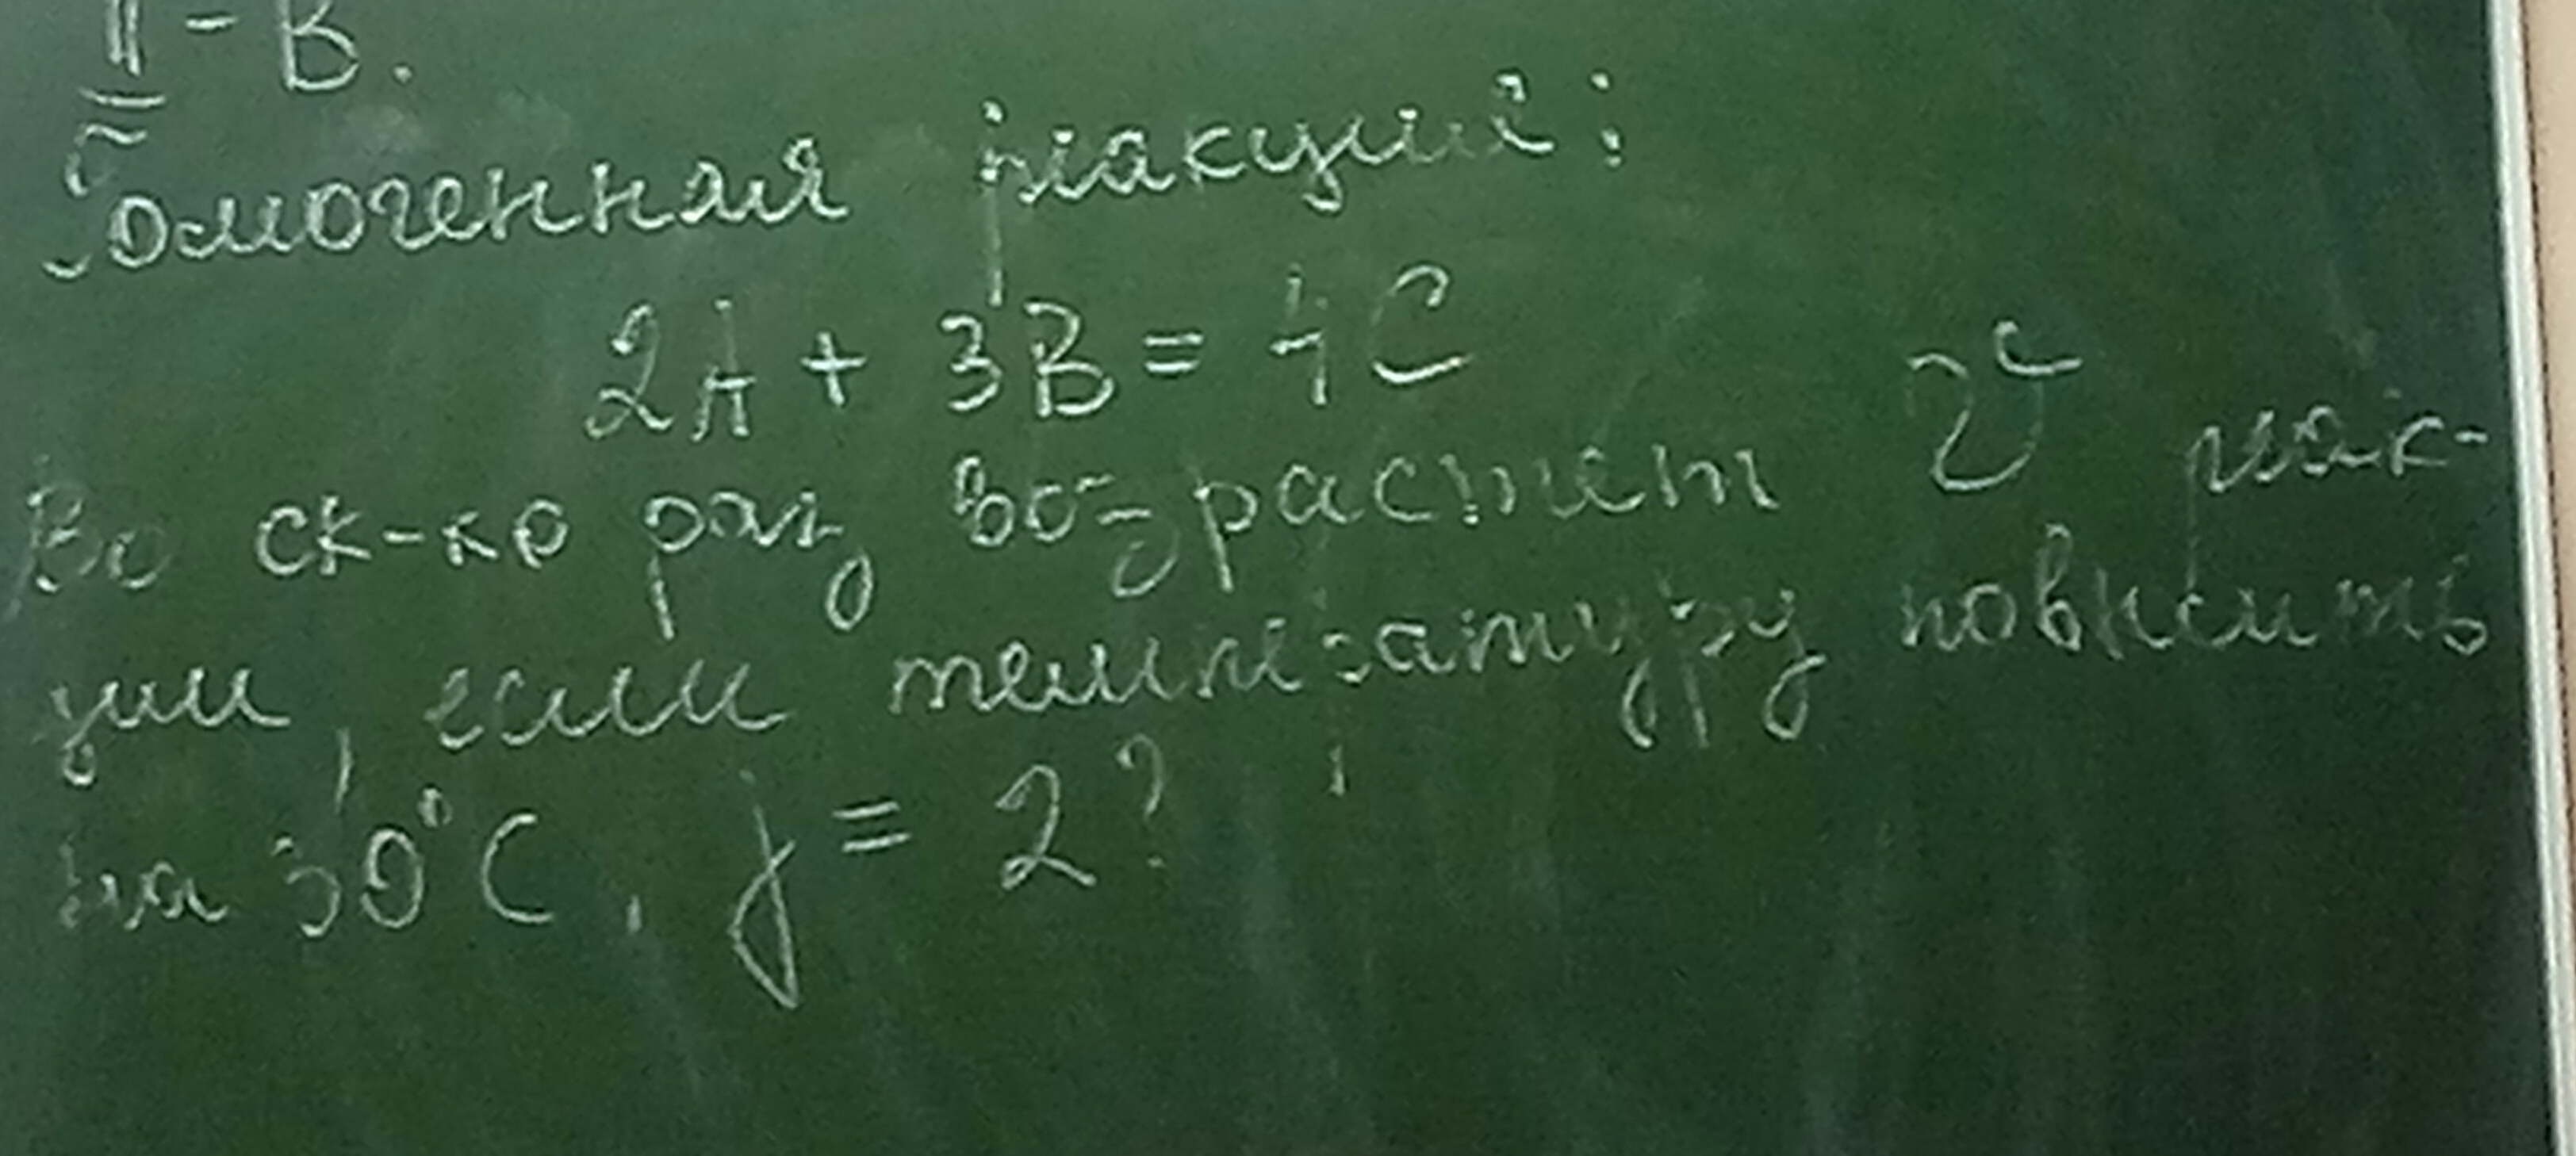 II - В.
Гомогенная реакция:
2A + 3B = 4C
Во ск-ко раз возрастет V реак-
ции, если температуру повысить
на 30°C, j = 2?